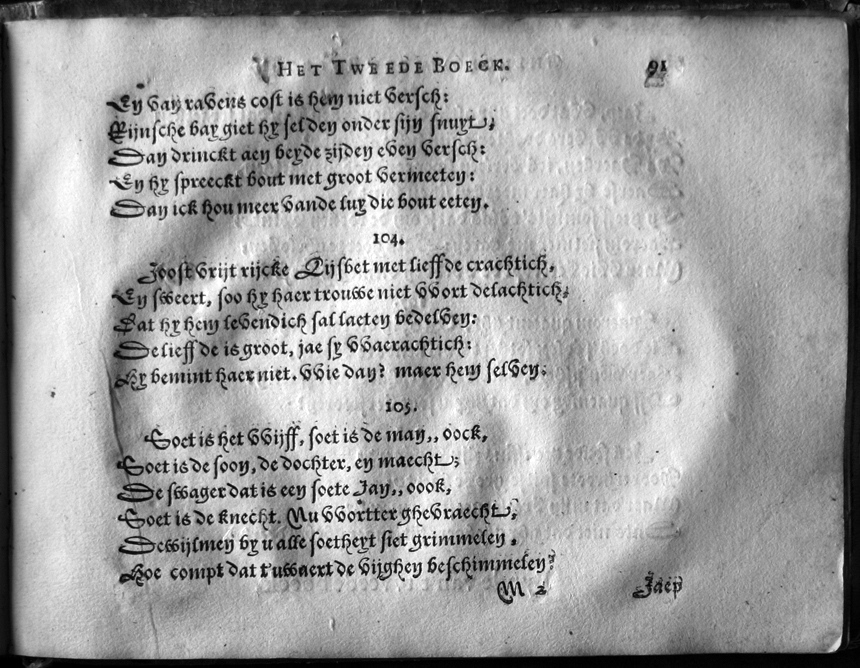 HET TWEEDE BOECK. 91
En van ravens cost is hem niet versch:
Rijnsche bay giet hy selden onder sijn snuyt,
Dan drinckt aen beyde zijden even versch:
En hy spreeckt bout met groot vermeeten:
Dan ick hou meer vande luy die bout eeten.
104.
Joost vrijt rijcke Lijsbet met lieffde crachtich,
En sweert, soo hy haer trouwe niet wort delachtich,
Dat hy hem levendich sal laeten bedelven:
De lieffde is groot, jae sy waerachtich:
Hy bemint haer niet. Wie dan? maer hem selven.
105.
Soet is het Wijff, soet is de man,, oock,
Soet is de soon, de dochter, en maecht,
De swager dat is een soete Jan,, oook,
Soet is de knecht. Nu wortter ghevraecht,
Dewijlmen by u alle soetheyt siet grimmelen,
Hoe compt dat t'uwaert de vijghen beschimmelen?
M 2 Jaep